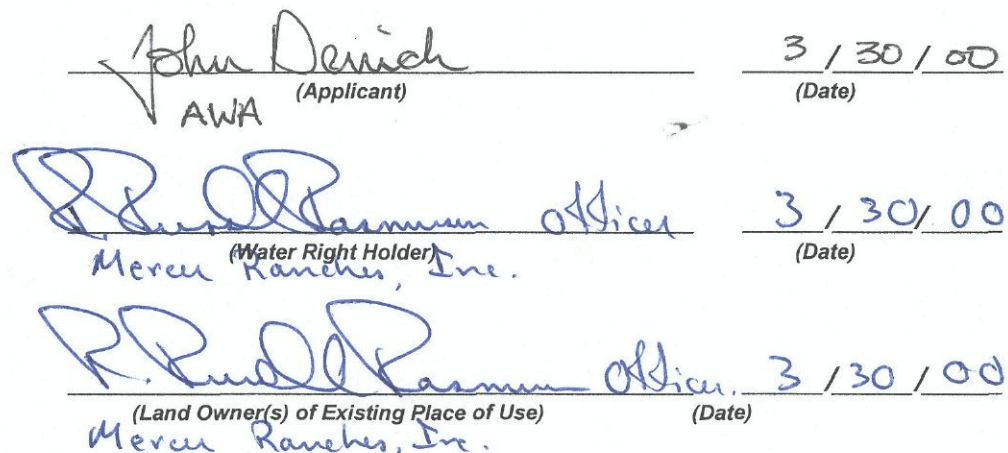 John 3 / 30 / 00
(Applicant) (Date)
AWA
R. Russell Rasmussen Officer 3 / 30 / 00
(Water Right Holder) (Date)
Mercer Ranches, Inc.
R. Russell Rasmussen Officer. 3 / 30 / 00
(Land Owner(s) of Existing Place of Use) (Date)
Mercer Ranches, Inc.